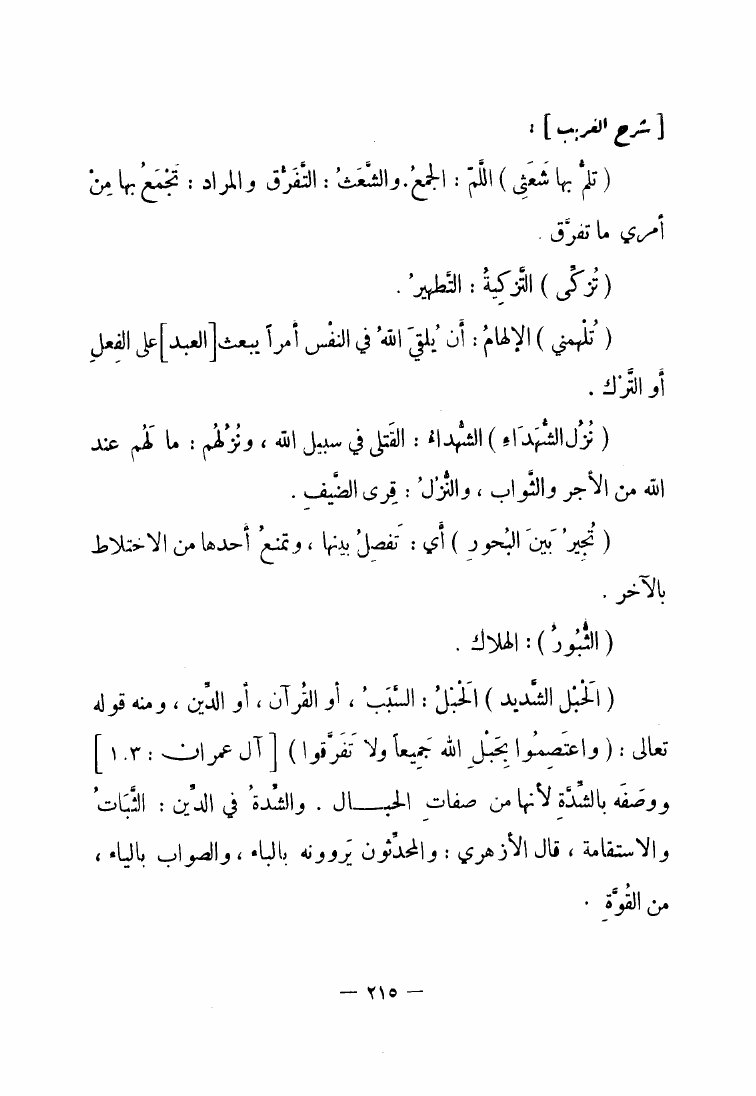 [ شرح الغريب ] :
( تلمُّ بها شَعَثِي ) اللَّمّ : الجمعُ. والشَّعَثُ : التَّفَرُّق والمراد : تَجْمَعُ بها مِنْ
أمري ما تفرَّق .
( تُزكّى ) التَّزكِيةُ : التَّطهيرُ .
( تُلْهِمني ) الإلهامُ : أن يُلقيَ اللهُ في النفْس أمراً يبعث [العبد] على الفِعلِ
أو التَّرْك .
( نُزُل الشُّهَدَاءِ ) الشُّهداءُ : القَتلى في سبيل الله ، ونُزُلُهُم : ما لَهُم عند
الله من الأجر والثَّواب ، والنُّزْلُ : قِرى الضَّيفِ .
( تُجِيرُ بَينَ البُحورِ ) أي : تَفصِلُ بينها ، وتمنعُ أحدها من الاختلاط
بالآخر .
( الثُّبُورُ ) : الهلاك .
( الحَبْل الشَّديد ) الحَبْلُ : السَّبَبُ ، أو القُرآن ، أو الدِّين ، ومنه قوله
تعالى : ( واعتَصِمُوا بِحَبْلِ الله جَمِيعاً ولا تَفَرَّقوا ) [ آل عمران : ١٠٣ ]
ووصَفَه بالشِّدَّةِ لأنها من صفاتِ الحبـــال . والشِّدةُ في الدِّين : الثَّبَاتُ
والاستقامة ، قال الأزهري : والمحدِّثون يَروونه بالباء ، والصواب بالياء ،
من القُوَّةِ .
— ٢١٥ —